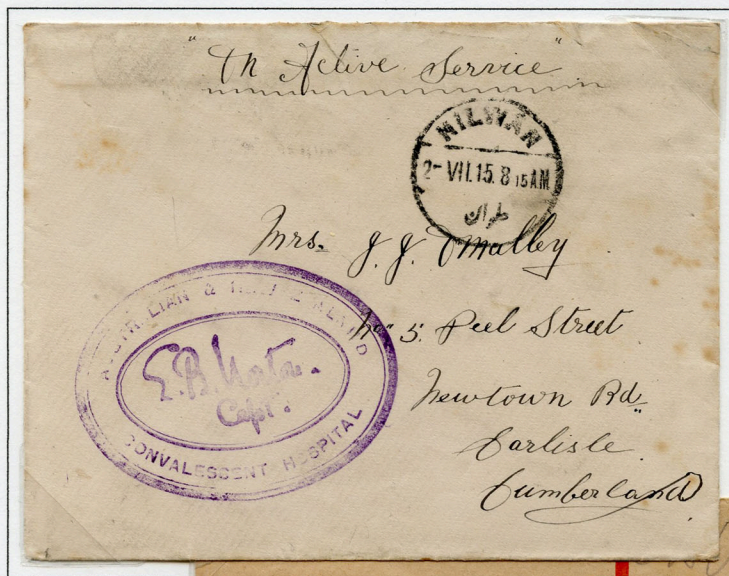 "On Active Service"
HILWAN
2- VII.15. 8 15 AM
حلوان
Mrs. J. J. O'Malley
No 5. Peel Street
Newtown Rd.
Carlisle.
Cumberland
AUSTRALIAN & NEW ZEALAND
E.B.
Capt.
CONVALESCENT HOSPITAL